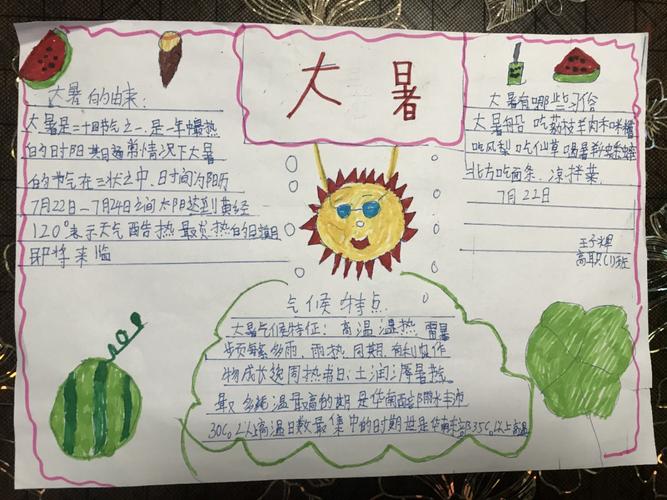 大暑
大暑的由来：
大暑是二十四节气之一，是一年中最热
的时阳 通常情况下大暑
的节气在三伏之中，日时间为阳历
7月22日—7月24日之间太阳达到黄经
120°表示天气酷热 最炎热的
即将来临
大暑有哪些习俗
大暑船 吃荔枝羊肉和米糟
吃凤梨 吃仙草 喝暑羊 蟋蟀
北方吃面条、凉拌菜
7月22日
王子
高职(1)班
气候特点
大暑气候特征：高温湿热 雷暑
频繁多雨、雨热同期，有利农作
物成长 土润溽暑
温最高的时期是华南西部雨水丰沛
30C以上高温日数最集中的时期也是华南东部35C以上高温